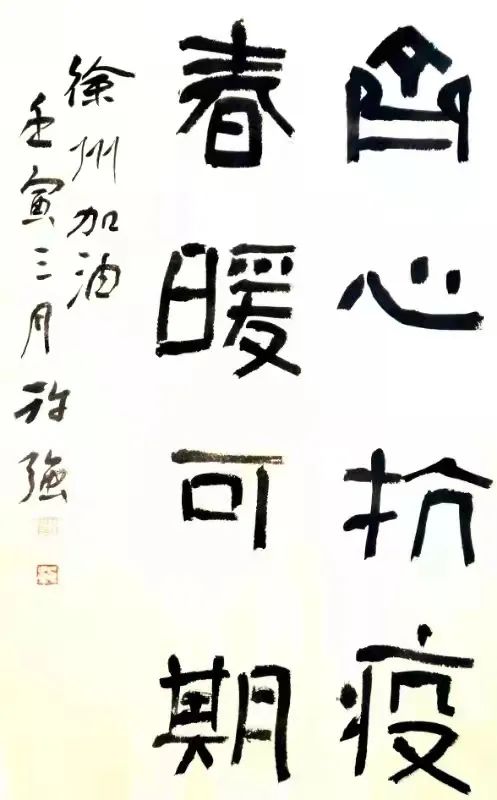 齊心抗疫
春暖可期
徐州加油
壬寅三月許強